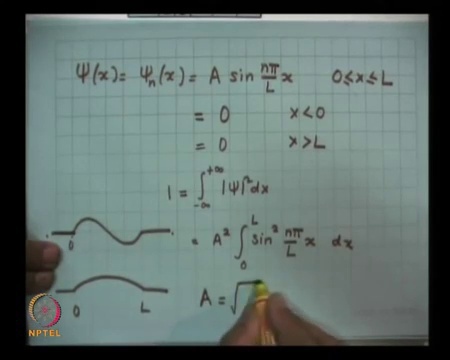 Ψ(x) = Ψn(x) = A sin nπ/L x    0≤x≤L
= 0    x<0
= 0    x>L
1 = ∫_{-∞}^{+∞} |Ψ|² dx
= A² ∫_0^L sin² nπ/L x dx
0
0    L
A = √
NPTEL